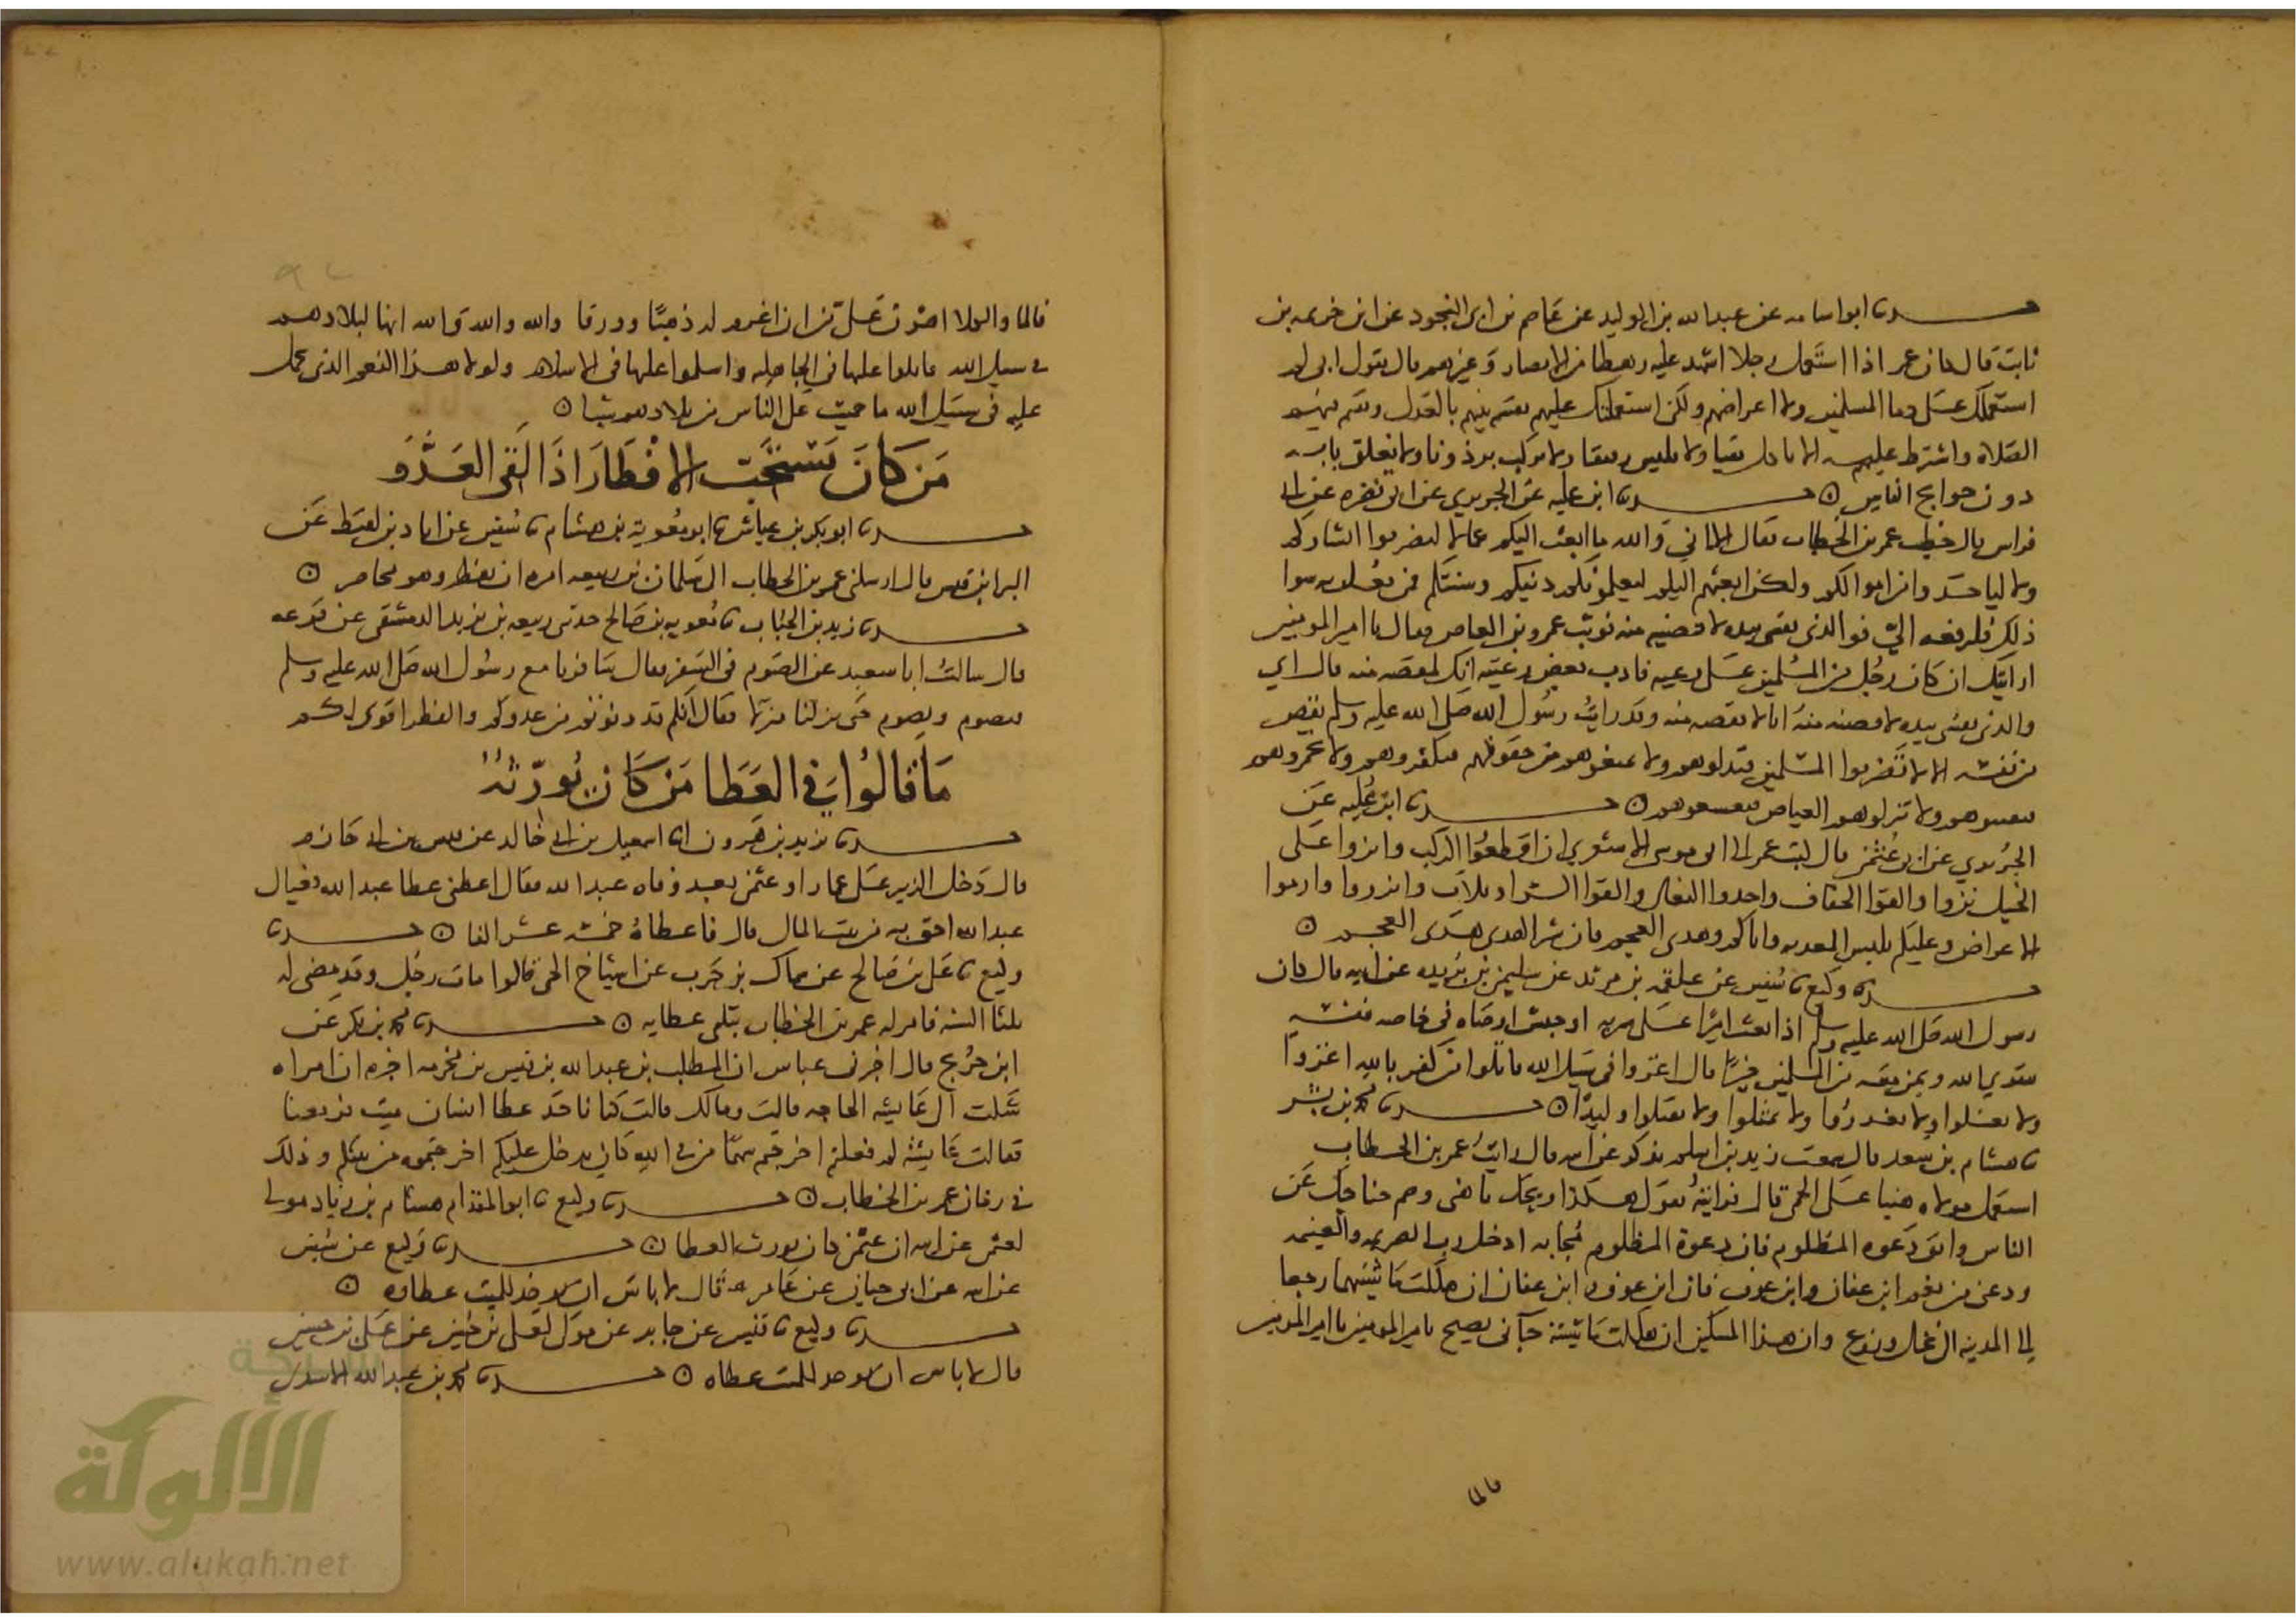 حدثنا ابو اسامه عن عبد الله بن الوليد عن عاصم بن ابى النجود عن ابن خزيمه بن
ثابت قال كان عمر اذا استعمل رجلا اشهد عليه رهطا من الانصار وغيرهم قال يقول انى لم
استعملك على دما المسلمين ولا اعراضهم ولكن استعملتك عليهم لتقسم بينهم بالعدل وتقيم فيهم
الصلاه واشترط عليه الا ياكل نقيا ولا يلبس رقيقا ولا يركب برذونا ولا يغلق بابه
دون حوايج الناس ۞ حدثنا ابن عليه عن الجريري عن ابى نضره عن ابى
فراس قال خطب عمر بن الخطاب فقال الا انى والله ما ابعث اليكم عمالا ليضربوا ابشاركم
ولا لياخذوا اموالكم ولكن ابعثهم اليكم ليعلموكم دينكم وسنتكم فمن فعل به سوا
ذلك فليرفعه الي فوالذى نفسى بيده لاقصنه منه فوثب عمرو بن العاص فقال يا امير المومنين
ارايتك ان كان رجل من المسلمين على رعيه فادب بعض رعيته انك لمقصه منه قال اي
والذى نفسى بيده لاقصنه منه انا لا اقصه منه وقد رايت رسول الله صلى الله عليه وسلم يقص
من نفسه الا لا تضربوا المسلمين فتذلوهم ولا تمنعوهم من حقوقهم فتكفروهم ولا تجمروهم
فتفتنوهم ولا تنزلوهم الغياض فتضيعوهم ۞ حدثنا ابن عليه عن
الجريري عن ابى عثمن قال كتب عمر الى ابى موسى الاشعري ان اقطعوا الركب وانزوا على
الخيل نزوا والقوا الخفاف واحذوا النعال والقوا السراويلات واتزروا وارموا
الاغراض وعليكم بلبس المعديه واياكم وهدي العجم فان شر الهدى هدى العجم ۞
حدثنا وكيع نا سفين عن علقمه بن مرثد عن سليمن بن بريده عن ابيه قال كان
رسول الله صلى الله عليه وسلم اذا بعث اميرا على سريه او جيش اوصاه فى خاصه نفسه
بتقوي الله وبمن معه من المسلمين خيرا قال اغزوا فى سبيل الله قاتلوا من كفر بالله اغزوا
ولا تغلوا ولا تغدروا ولا تمثلوا ولا تقتلوا وليدا ۞ حدثنا محمد بن بشر
نا هشام بن سعد قال سمعت زيد بن اسلم يذكر عن ابيه قال رايت عمر بن الخطاب
استعمل مولاه هنيا على الحمى قال فرايته يقول هكذا ويحك يا هنى ضم جناحك عن
الناس واتق دعوه المظلوم فان دعوة المظلوم مجابه ادخل رب الصريمه والغنيمه
ودعنى من نعم ابن عفان وابن عوف فان ابن عوف وابن عفان ان هلكت ماشيتهما رجعا
الى المدينه الى نخل وزرع وان هذا المسكين ان هلكت ماشيته جآنى يصيح يا امير المومنين يا امير المومنين
فالما
فالما والكلا اهون على من ان اغرم له ذهبا وورقا والله والله والله انها لبلادهم
فى سبيل الله قاتلوا عليها فى الجاهليه واسلموا عليها فى الاسلام ولولا هذا النعم الذى يحمل
عليه فى سبيل الله ما حميت على الناس من بلادهم شيا ۞
من كان يستحب الافطار اذا لقى العدو
حدثنا ابو بكر بن عياش نا ابو معويه بن هشام نا سفين عن اياد بن لقيط عن
البرا بن قيس قال ارسلنى عمر بن الخطاب الى سلمان بن ربيعه امره ان يفطر وهو محاصر ۞
حدثنا زيد بن الحباب نا معويه بن صالح حدثنى ربيعه بن يزيد الدمشقى عن قزعه
قال سالت ابا سعيد عن الصوم فى السفر فقال سافرنا مع رسول الله صلى الله عليه وسلم
فيصوم ونصوم حتى نزلنا منزلا فقال انكم قد دنوتم من عدوكم والفطر اقوى لكم
ما قالوا فى العطا من كان يورثه
حدثنا يزيد بن هرون انا اسمعيل بن ابى خالد عن قيس بن ابى حازم
قال دخل الزبير على عمار او عثمن بعد وفاه عبد الله فقال اعطنى عطا عبد الله فعيال
عبد الله احق به من بيت المال قال فاعطاه خمسه عشر الفا ۞ حدثنا
وكيع نا على بن صالح عن سماك بن حرب عن اشياخ الحى قالوا مات رجل وقد مضى له
ثلثا السنه فامر له عمر بن الخطاب بثلثى عطايه ۞ حدثنا محمد بن بكر عن
ابن جريج قال اخبرنى عباس ان المطلب بن عبد الله بن قيس بن مخرمه اخبره ان امراه
سالت عايشه الحاجه قالت وما لك قالت كنا ناخذ عطا انسان ميت فرفعنا
فقالت عايشه لم فعلتم اخرجتم سهما من فى الله كان يدخل عليكم اخرجتموه من بينكم وذلك
فى زمان عمر بن الخطاب ۞ حدثنا وكيع نا ابو المقدام هشام بن زياد مولى
لعثمن عن ابيه ان عثمن كان يورث العطا ۞ حدثنا وكيع عن سفين
عن ابيه عن ابى حيان عن عامر قال لا باس ان يوخذ للميت عطاوه ۞
حدثنا وكيع نا سفين عن جابر عن مولى لعلى بن حسين عن على بن حسين
قال لا باس ان يوخذ للميت عطاه ۞ حدثنا محمد بن عبد الله الاسدى
شبكة
الألوكة
www.alukah.net